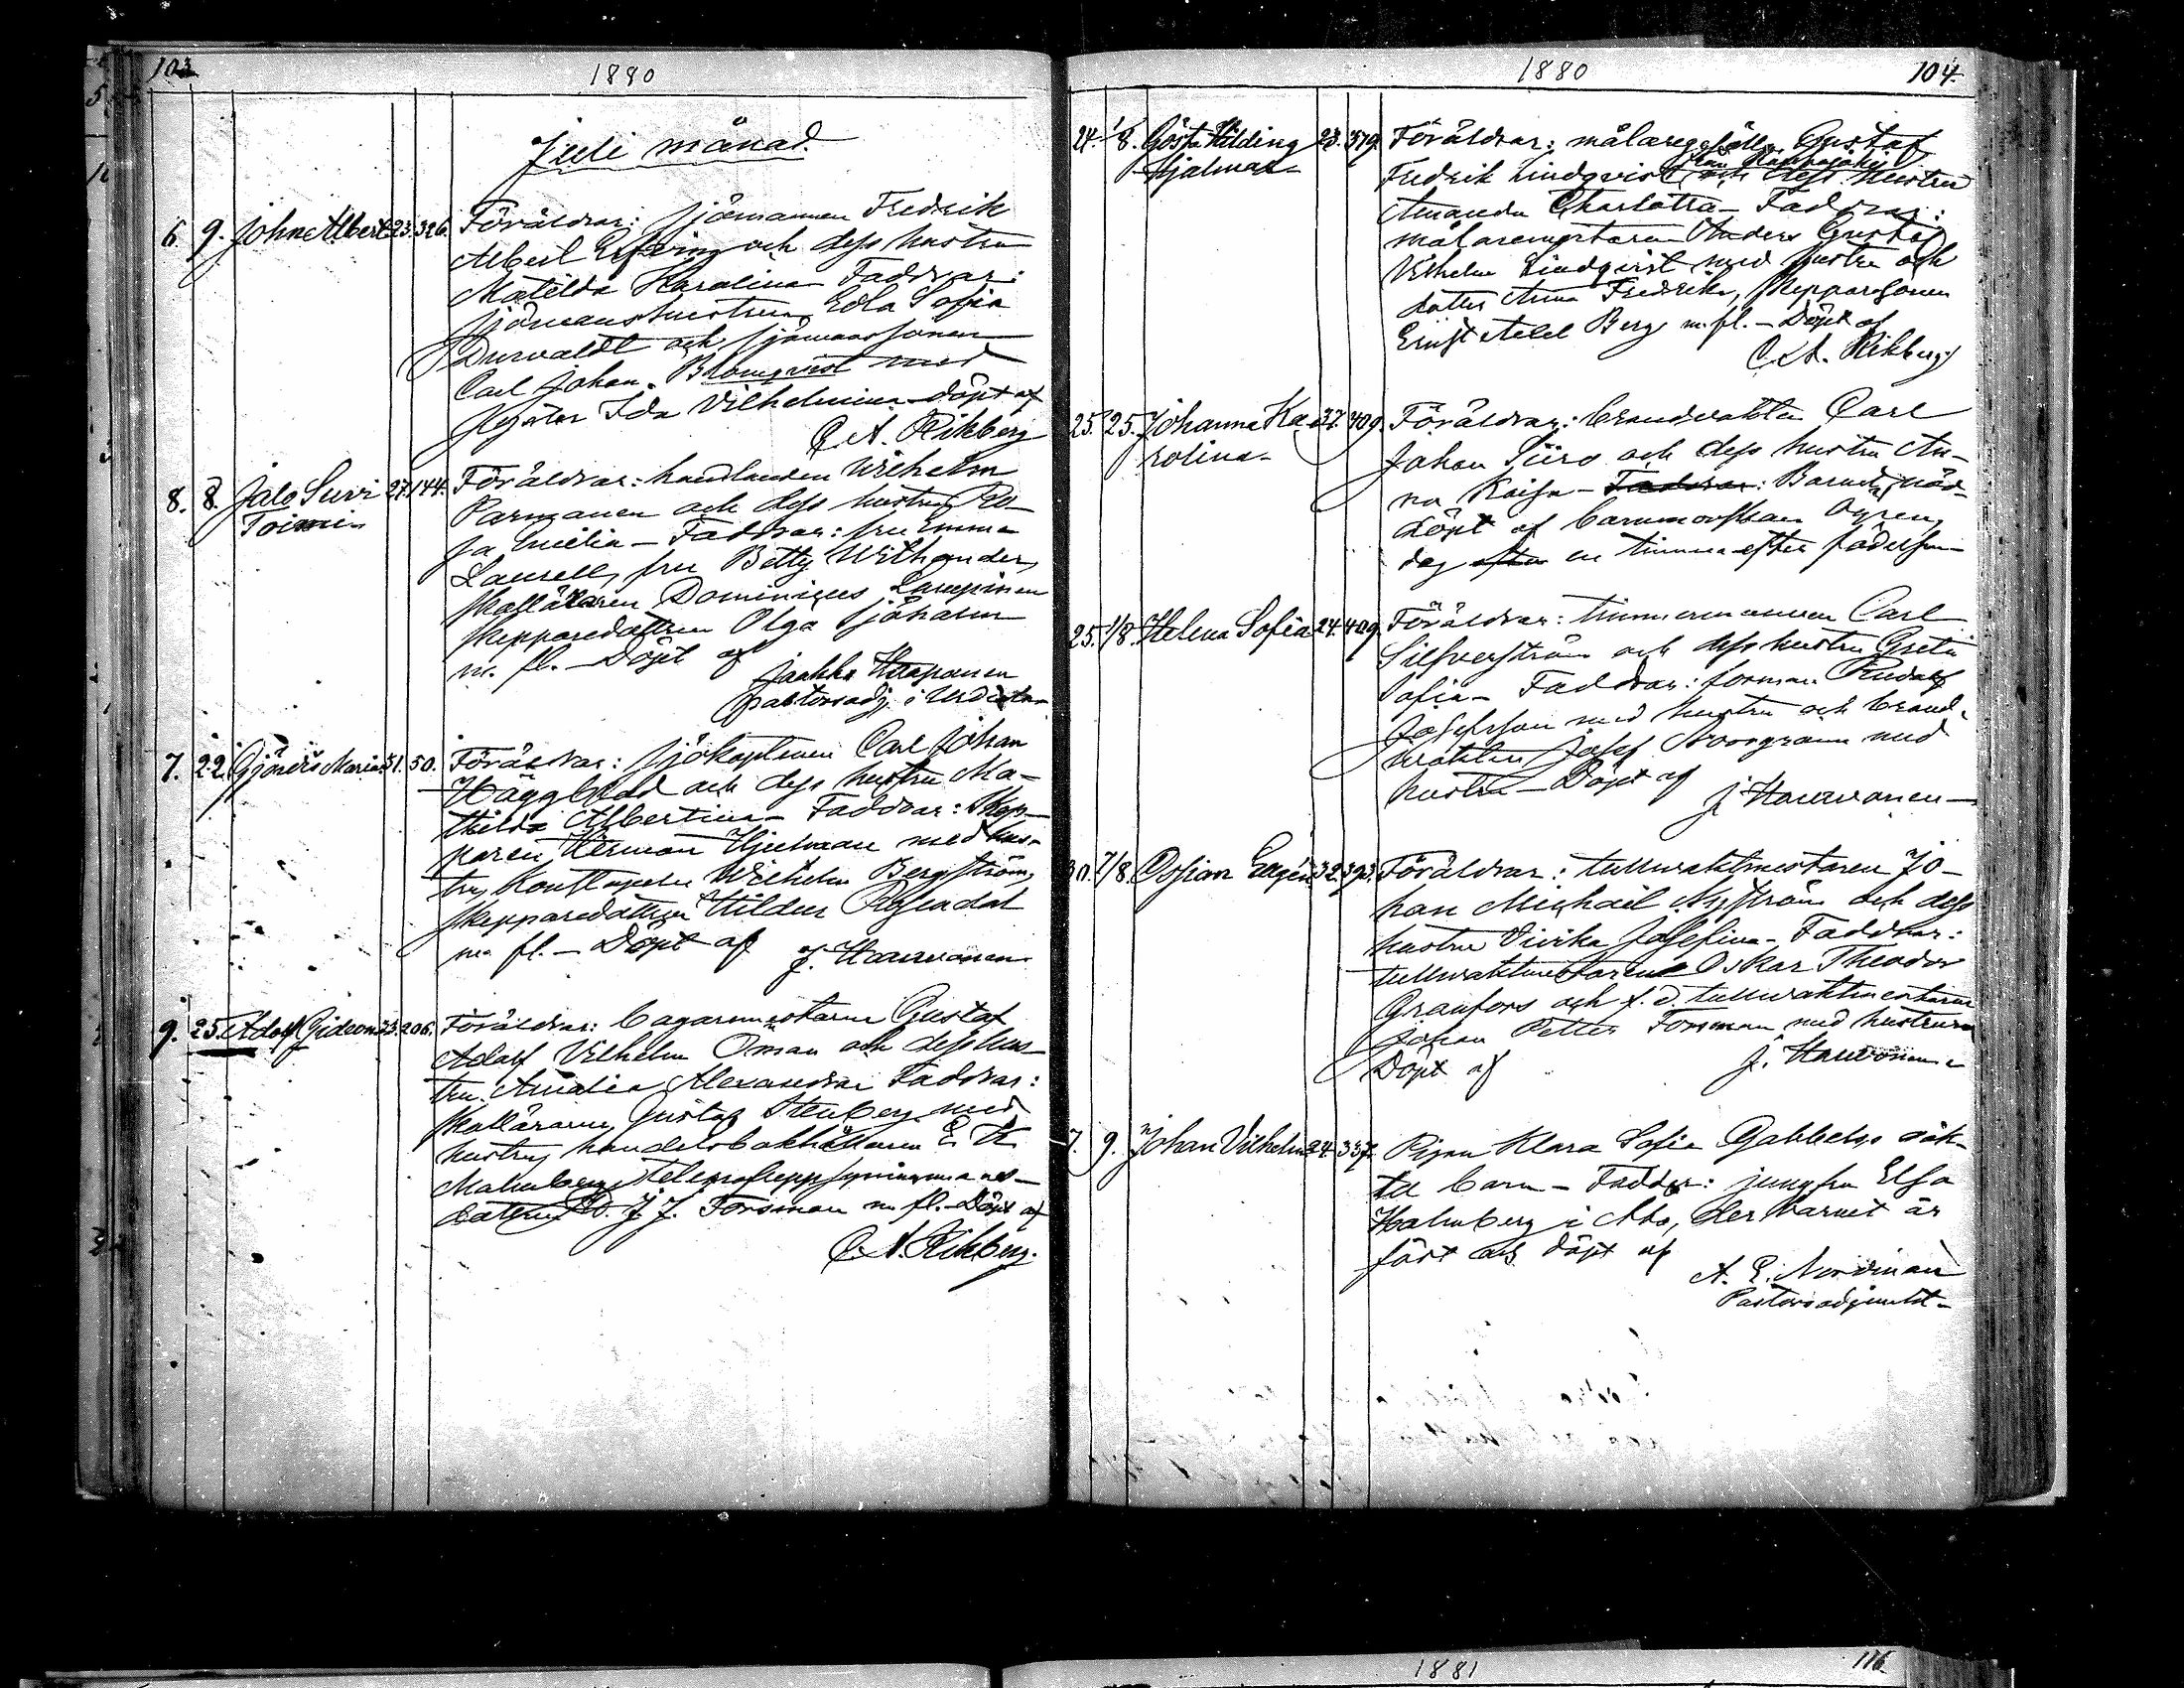 103.
1880
Juli månad.
6. 9. John Albert 23. 326. Föräldrar: sjömannen Fredrik
Albert och dess hustru
Matilda Karolina – Faddrar:
sjömanshustrun Edla Sofia
Durvaldt och sjömanssonen
Carl Johan Blomqvist med
syster Ida Vilhelmina – döpt af
C. A. Rikberg
8. 8. Jalo Suvi 27. 144. Föräldrar: handlanden Wilhelm
Toimi – Parmanen och dess hustru Ro-
sa – Faddrar: fru Emma
Lausell, fru Betty Withander,
Dominicus Lampinen
skepparedottren Olga Sjöholm
m. fl. – Döpt af
Jaakko Haapanen
pastorsadj. i
7. 22. Maria 51. 50. Föräldrar: sjökaptenen Carl Johan
Häggblad och dess hustru Ma-
thilda Albertina – Faddrar: Skep-
paren Herman Hjelman med hus-
tru, Konstapeln Wilhelm Bergström,
skepparedottren Hildur Rosendal
m. fl. – Döpt af J. Hauvonen
9. 25. Adolf Gideon 23. 206. Föräldrar: bagaremästaren Gustaf
Adolf Vilhelm Öman och dess hus-
tru Amalia Alexandra Faddrar:
Gustaf Stenberg med
hustru, handelsbokhållaren E. H.
Malmberg,
J. J. Forsman m. fl. – Döpt af
C. A. Rikberg.
1880
104.
24. 1/8. Gösta Hilding 23. 379. Föräldrar: målaregesällen Gustaf
Hjalmar – Fredrik Lindqvist och dess hustru
Amanda Charlotta – Faddrar:
målaremästaren Anders Gustaf
Vilhelm Lindqvist med hustru och
dotter Anna Fredrika, skepparesonen
Ernst Axel Berg m. fl. – Döpt af
C. A. Rikberg
25. 25. Johanna Ka- 37. 409. Föräldrar: brandvakten Carl
rolina – Johan Siiro och dess hustru An-
na Kaisa – Faddrar: Barnet nöd-
döpt af barnmorskan Ögren,
dog efter en timma efter födelsen –
25. 1/8. Helena Sofia 24. 409. Föräldrar: timmermannen Carl
Silfverström och dess hustru Greta
Sofia – Faddrar: forman Rudolf
Josefsson med hustru och brand-
vakten Josef Norrgrann med
hustru – Döpt af
J. Hauvonen –
30. 7/8. Eugén 32. 393. Föräldrar: tullvaktmestaren Jo-
han Michail Nyström och dess
hustru Vivika Josefina – Faddrar:
tullvaktmestaren Oskar Theodor
Granfors och f. d. tullvaktmestaren
Johan Petter Forsman med hustrur
Döpt af J. Hauvonen
7. 9. Johan Vilhelm 24. 337. Pigan Klara Sofia Gabbelss oäk-
ta barn – Faddrar: jungfru Elsa
Holmberg i Åbo, der barnet är
födt och döpt af
A. E. Nordman
Pastorsadjunkt –
1881
116.